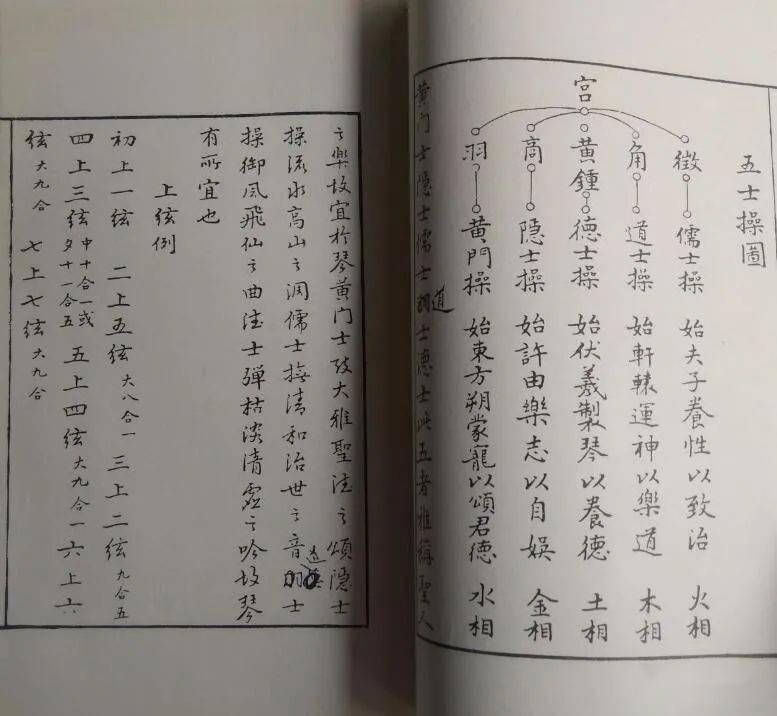 五士操圖
宮
徵 儒士操 始夫子養性以致治 火相
角 道士操 始軒轅運神以樂道 木相
黃鍾 德士操 始伏羲製琴以養德 土相
商 隐士操 始許由樂志以自娛 金相
羽 黃門操 始東方朔蒙寵以頌君德 水相
黄门士隐士儒士道士德士此五者雅稱聖人
之樂故宜於琴黄门士歌大雅聖法之頌隐士
操流水高山之调儒士撫清和治世之音道士
操御风飛仙之曲德士弹枯淡清虛之吟故琴
有所宜也
上弦例
初上一弦 二上五弦 大八合一 三上二弦 九合五
四上三弦 中十合一或夕十一合五 五上四弦 大九合一 六上六
弦 大九合 七上七弦 大九合